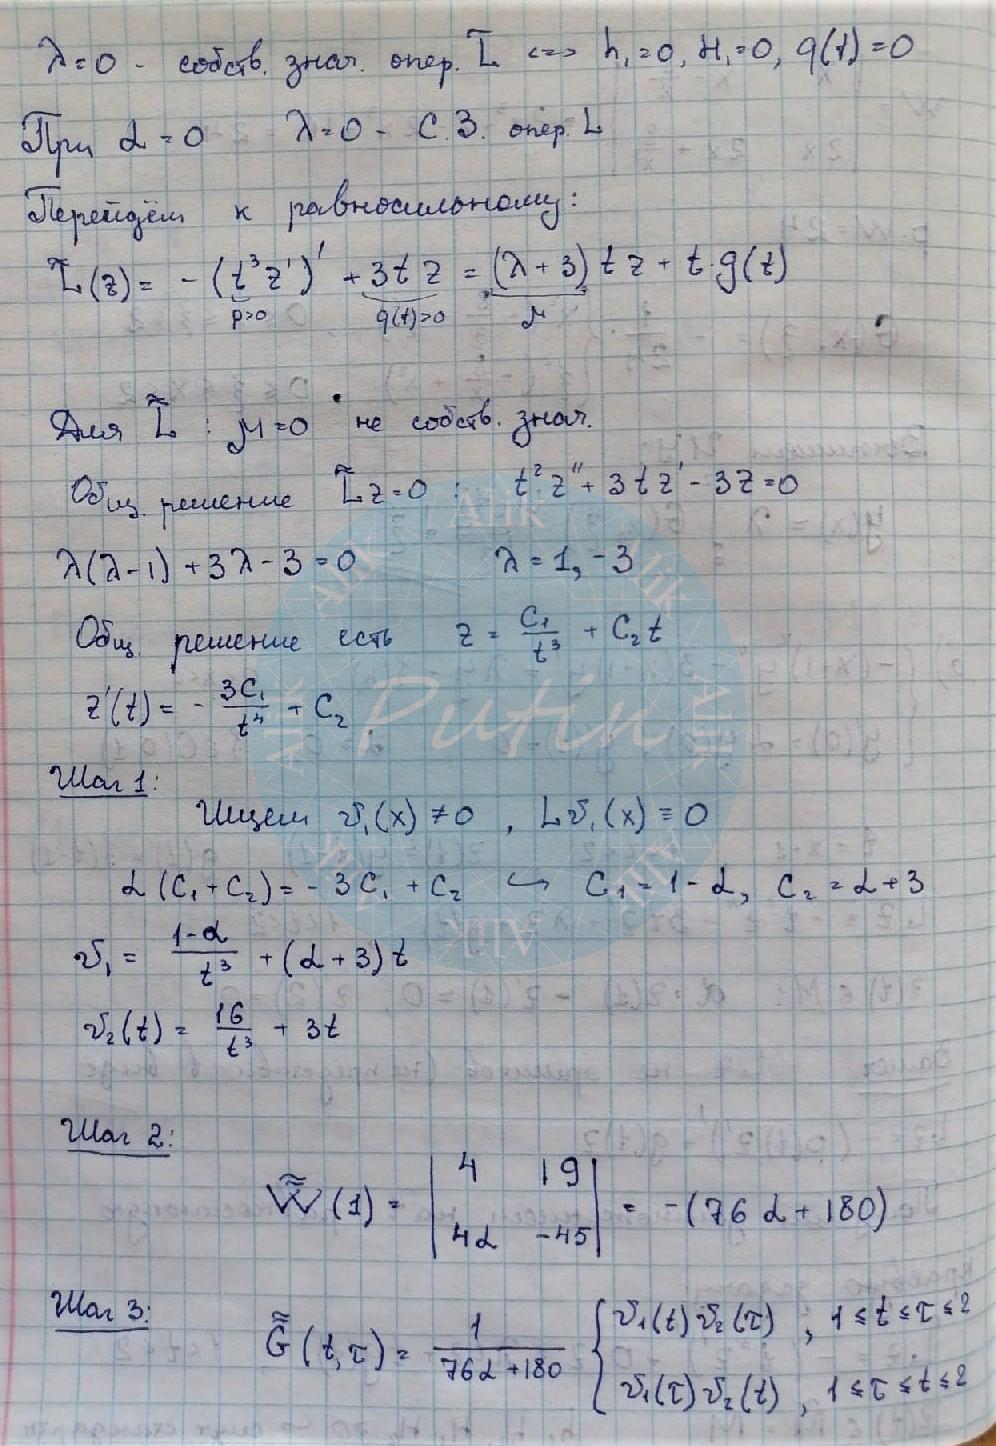 λ=0 - собств. знач. опер. L̃ <=> h₁=0, H₁=0, q(t)=0
При α=0 λ=0 - С.З. опер. L
Перейдём к равносильному:
L̃(z) = -(t³z')' + 3tz = (λ+3)tz + t·g(t)
p>0 q(t)>0 μ
Для L̃̃ : μ=0 не собств. знач.
Общ. решение L̃̃z=0 : t²z''+3tz'-3z=0
λ(λ-1)+3λ-3=0 λ=1,-3
Общ. решение есть z = C₁/t³ + C₂t
z'(t) = -3C₁/t⁴ + C₂
Шаг 1:
Ищем v₁(x) ≠ 0 , Lv₁(x) ≡ 0
α(C₁+C₂) = -3C₁+C₂ ↪ C₁=1-α, C₂=α+3
v₁ = (1-α)/t³ + (α+3)t
v₂(t) = 16/t³ + 3t
Шаг 2:
W̃̃(1) = | 4 19 |
| 4α -45 | = -(76α+180)
Шаг 3:
G̃̃(t,τ) = 1/(76α+180) { v₁(t)v₂(τ) , 1≤t≤τ≤2
v₁(τ)v₂(t) , 1≤τ≤t≤2
Alik
Putin